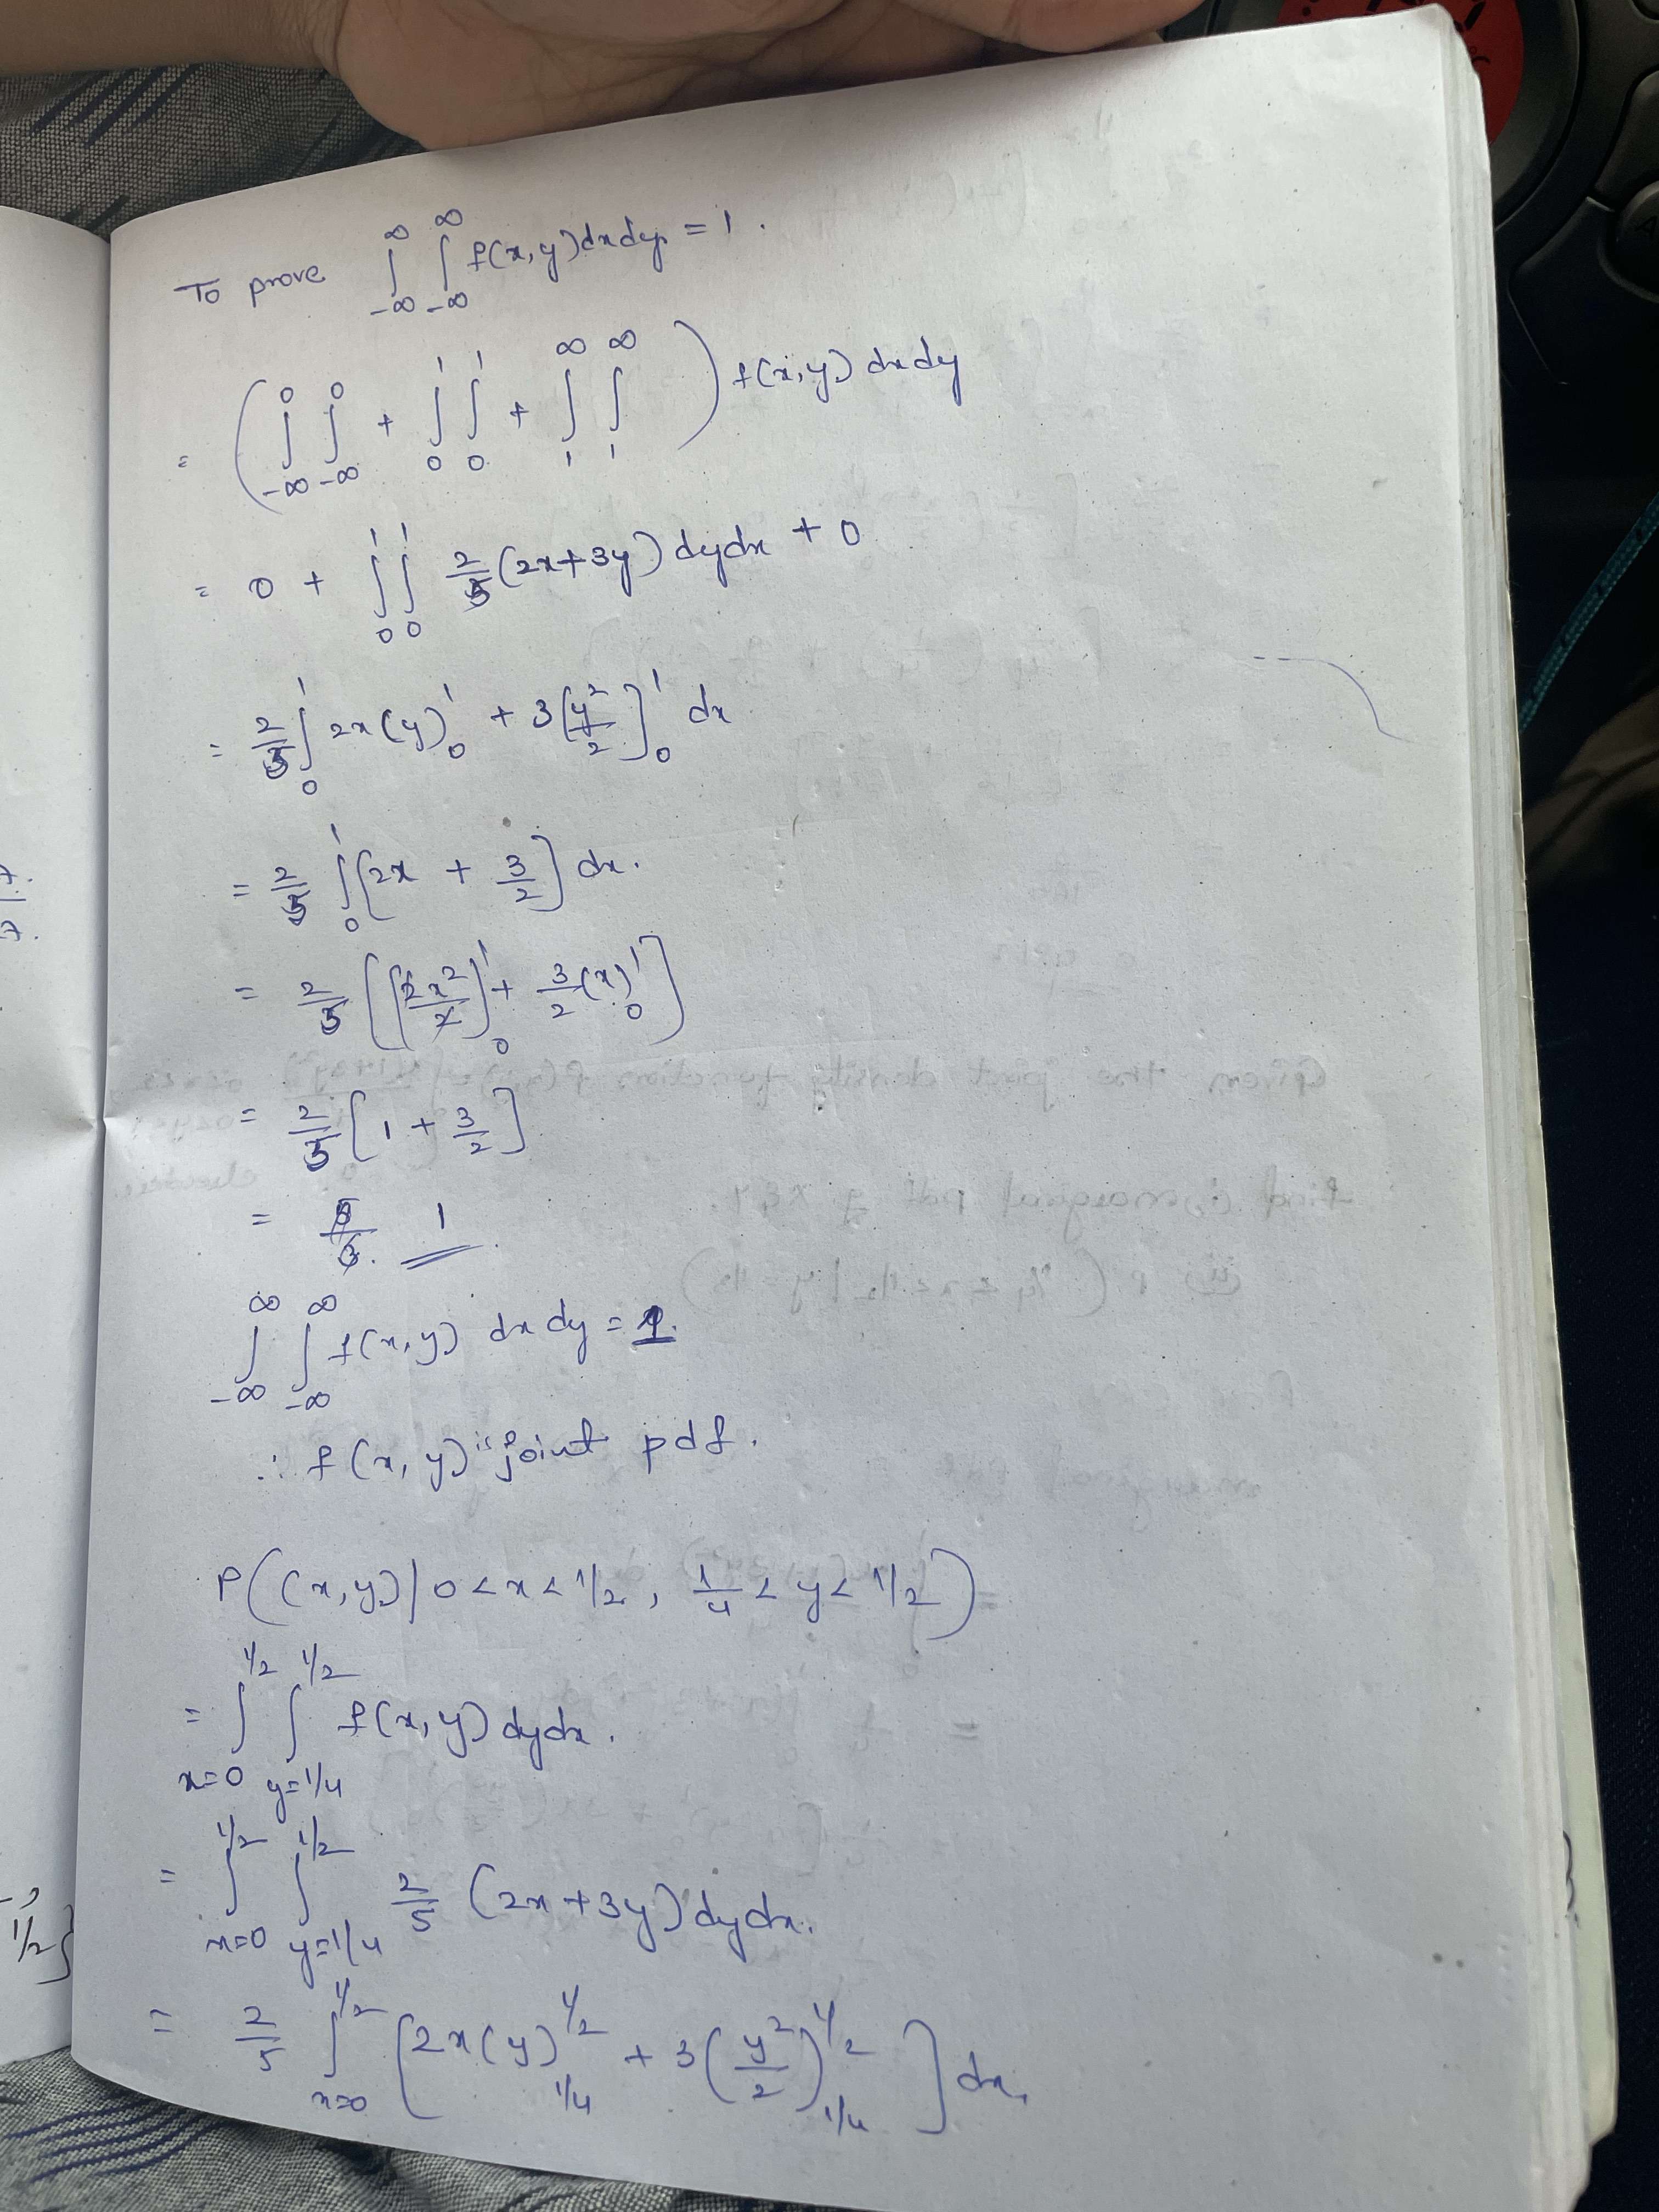 To prove ∫_{-∞}^{∞} ∫_{-∞}^{∞} f(x,y) dx dy = 1.
= ( ∫_{-∞}^{0} ∫_{-∞}^{0} + ∫_{0}^{1} ∫_{0}^{1} + ∫_{1}^{∞} ∫_{1}^{∞} ) f(x,y) dx dy
= 0 + ∫_{0}^{1} ∫_{0}^{1} 2/5 (2x+3y) dy dx + 0
= 2/5 ∫_{0}^{1} 2x(y)_{0}^{1} + 3[y²/2]_{0}^{1} dx
= 2/5 ∫_{0}^{1} [2x + 3/2] dx.
= 2/5 [ [2x²/2]_{0}^{1} + 3/2 (x)_{0}^{1} ]
= 2/5 [1 + 3/2]
= 1
∫_{-∞}^{∞} ∫_{-∞}^{∞} f(x,y) dx dy = 1.
∴ f(x,y) is joint pdf.
P((x,y) | 0 < x < 1/2, 1/4 < y < 1/2)
= ∫_{x=0}^{1/2} ∫_{y=1/4}^{1/2} f(x,y) dy dx.
= ∫_{x=0}^{1/2} ∫_{y=1/4}^{1/2} 2/5 (2x+3y) dy dx.
= 2/5 ∫_{x=0}^{1/2} [2x(y)_{1/4}^{1/2} + 3(y²/2)_{1/4}^{1/2}] dx.